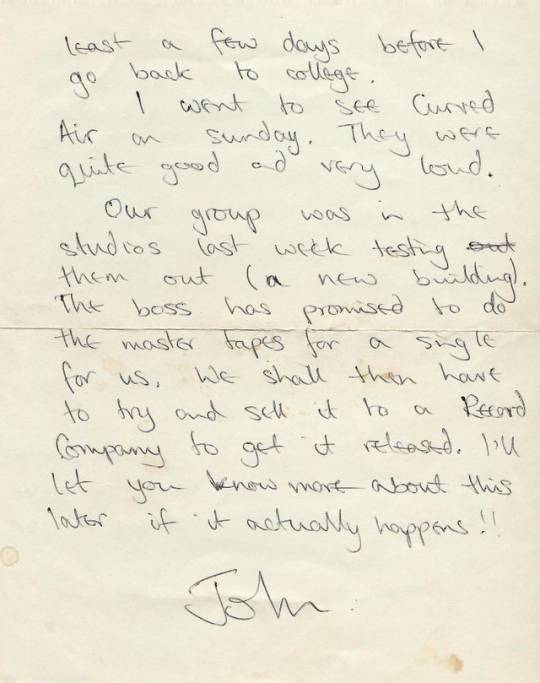 least a few days before I
go back to college.
I went to see Curved
Air on sunday. They were
quite good and very loud.
Our group was in the
studios last week testing out
them out (a new building).
The boss has promised to do
the master tapes for a single
for us. We shall then have
to try and sell it to a Record
Company to get it released. I'll
let you know more about this
later if it actually happens!!
John